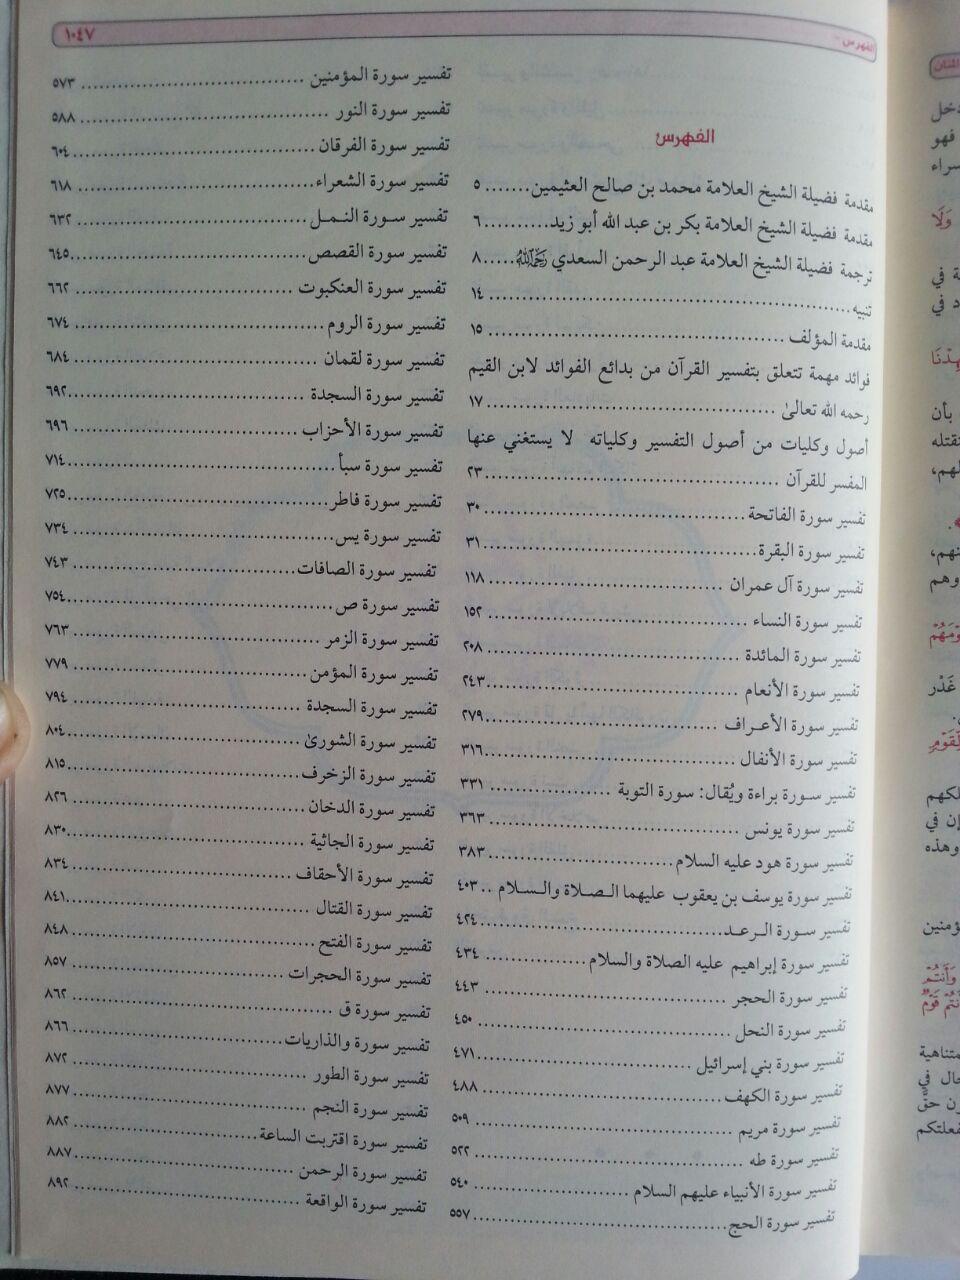 الفهرس
١٠٤٧
الفهرس
مقدمة فضيلة الشيخ العلامة محمد بن صالح العثيمين ....... ٥
مقدمة فضيلة الشيخ العلامة بكر بن عبد الله أبو زيد ......... ٦
ترجمة فضيلة الشيخ العلامة عبد الرحمن السعدي رحمه الله ..... ٨
تنبيه ......... ١٤
مقدمة المؤلف ......... ١٥
فوائد مهمة تتعلق بتفسير القرآن من بدائع الفوائد لابن القيم
رحمه الله تعالىٰ ......... ١٧
أصول وكليات من أصول التفسير وكلياته لا يستغني عنها
المفسر للقرآن ......... ٢٣
تفسير سورة الفاتحة ......... ٣٠
تفسير سورة البقرة ......... ٣١
تفسير سورة آل عمران ......... ١١٨
تفسير سورة النساء ......... ١٥٢
تفسير سورة المائدة ......... ٢٠٨
تفسير سورة الأنعام ......... ٢٤٣
تفسير سورة الأعـراف ......... ٢٧٩
تفسير سورة الأنفال ......... ٣١٦
تفسير سـورة براءة ويُقال: سورة التوبة ......... ٣٣١
تفسير سورة يونس ......... ٣٦٣
تفسير سورة هود عليه السلام ......... ٣٨٣
تفسير سورة يوسف بن يعقوب عليهما الـصـلاة والـسـلام .. ٤٠٣
تفسير سـورة الـرعـد ......... ٤٢٤
تفسير سورة إبراهيم عليه الصلاة والسلام ......... ٤٣٤
تفسير سورة الحجر ......... ٤٤٣
تفسير سورة النحل ......... ٤٥٠
تفسير سورة بني إسرائيل ......... ٤٧١
تفسير سورة الكهف ......... ٤٨٨
تفسير سورة مريم ......... ٥٠٩
تفسير سورة طه ......... ٥٢٢
تفسير سورة الأنبياء عليهم السلام ......... ٥٤٠
تفسير سورة الحج ......... ٥٥٧
تفسير سورة المؤمنين ......... ٥٧٣
تفسير سورة النور ......... ٥٨٨
تفسير سورة الفرقان ......... ٦٠٤
تفسير سورة الشعراء ......... ٦١٨
تفسير سـورة النـمـل ......... ٦٣٢
تفسير سورة القصص ......... ٦٤٥
تفسير سورة العنكبوت ......... ٦٦٢
تفسير سورة الروم ......... ٦٧٤
تفسير سورة لقمان ......... ٦٨٤
تفسير سورة السجدة ......... ٦٩٢
تفسير سورة الأحزاب ......... ٦٩٦
تفسير سورة سبأ ......... ٧١٤
تفسير سورة فاطر ......... ٧٢٥
تفسير سورة يس ......... ٧٣٤
تفسير سورة الصافات ......... ٧٤٣
تفسير سورة ص ......... ٧٥٤
تفسير سورة الزمر ......... ٧٦٣
تفسير سورة المؤمن ......... ٧٧٩
تفسير سورة السجدة ......... ٧٩٤
تفسير سورة الشورىٰ ......... ٨٠٤
تفسير سورة الزخرف ......... ٨١٥
تفسير سورة الدخان ......... ٨٢٦
تفسير سورة الجاثية ......... ٨٣٠
تفسير سورة الأحقاف ......... ٨٣٤
تفسير سورة القتال ......... ٨٤١
تفسير سورة الفتح ......... ٨٤٨
تفسير سورة الحجرات ......... ٨٥٧
تفسير سورة ق ......... ٨٦٢
تفسير سورة والذاريات ......... ٨٦٦
تفسير سورة الطور ......... ٨٧٢
تفسير سورة النجم ......... ٨٧٧
تفسير سورة اقتربت الساعة ......... ٨٨٢
تفسير سورة الرحمن ......... ٨٨٧
تفسير سورة الواقعة ......... ٨٩٢